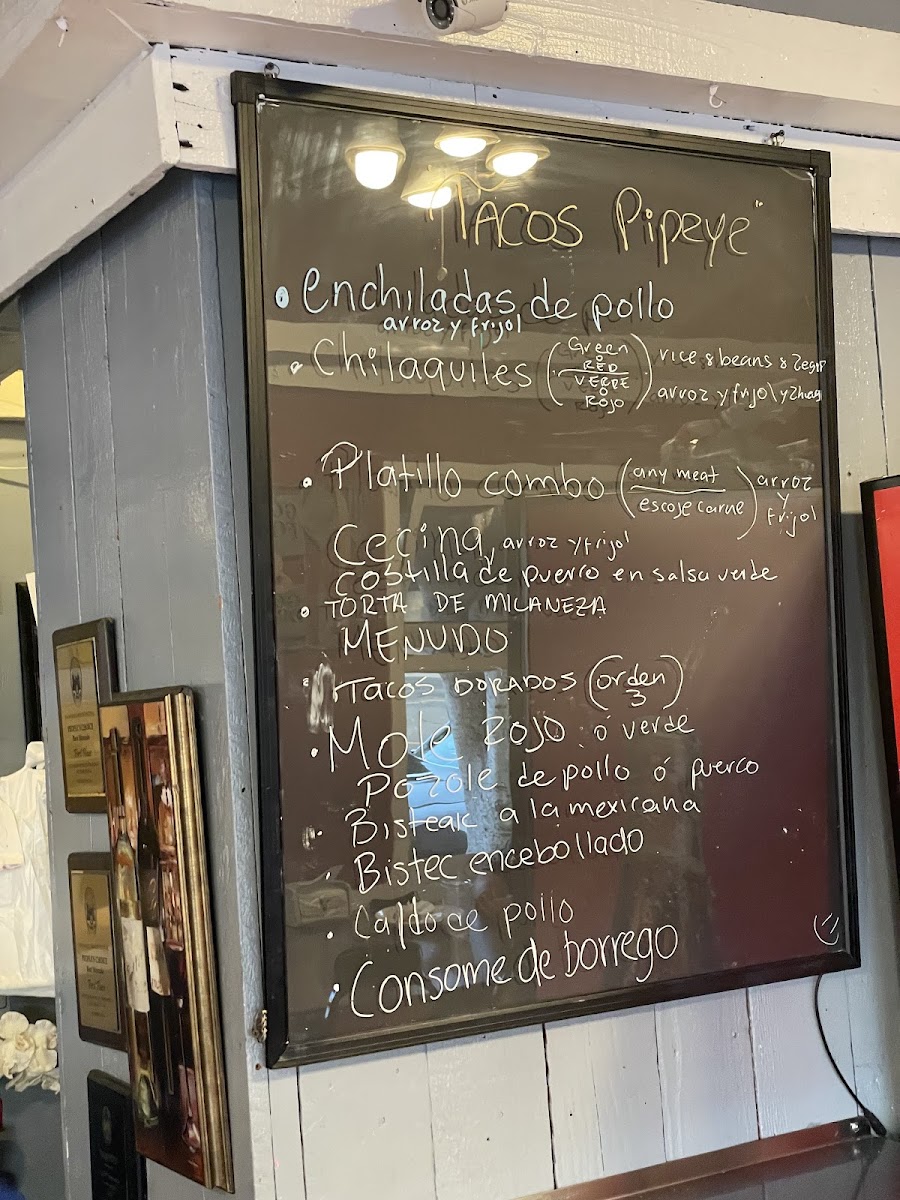 "Tacos Pipeye"
• enchiladas de pollo
arroz y frijol
• Chilaquiles (Green o RED / VERDE o ROJO) rice & beans & 2 egg
arroz y frijol y 2 hueg
• Platillo combo (any meat / escoje carne) arroz y frijol
Cecina, arroz y frijol
costilla de puerco en salsa verde
• TORTA DE MILANEZA
MENUDO
TACOS DORADOS (orden 3)
• Mole Rojo ó verde
Pozole de pollo ó puerco
• Bisteak a la mexicana
• Bistec encebollado
• Caldo de pollo
• Consome de borrego